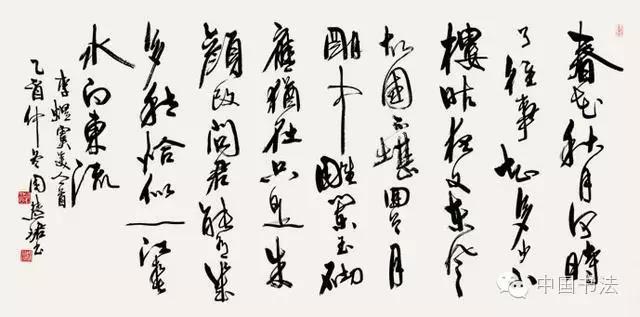 春花秋月何時
了往事知多少小
樓昨夜又東風
故國不堪回首月
明中雕闌玉砌
應猶在只是朱
顏改問君能有幾
多愁恰似一江春
水向東流
李煜虞美人一首
乙酉仲冬周慧珺書
中国书法